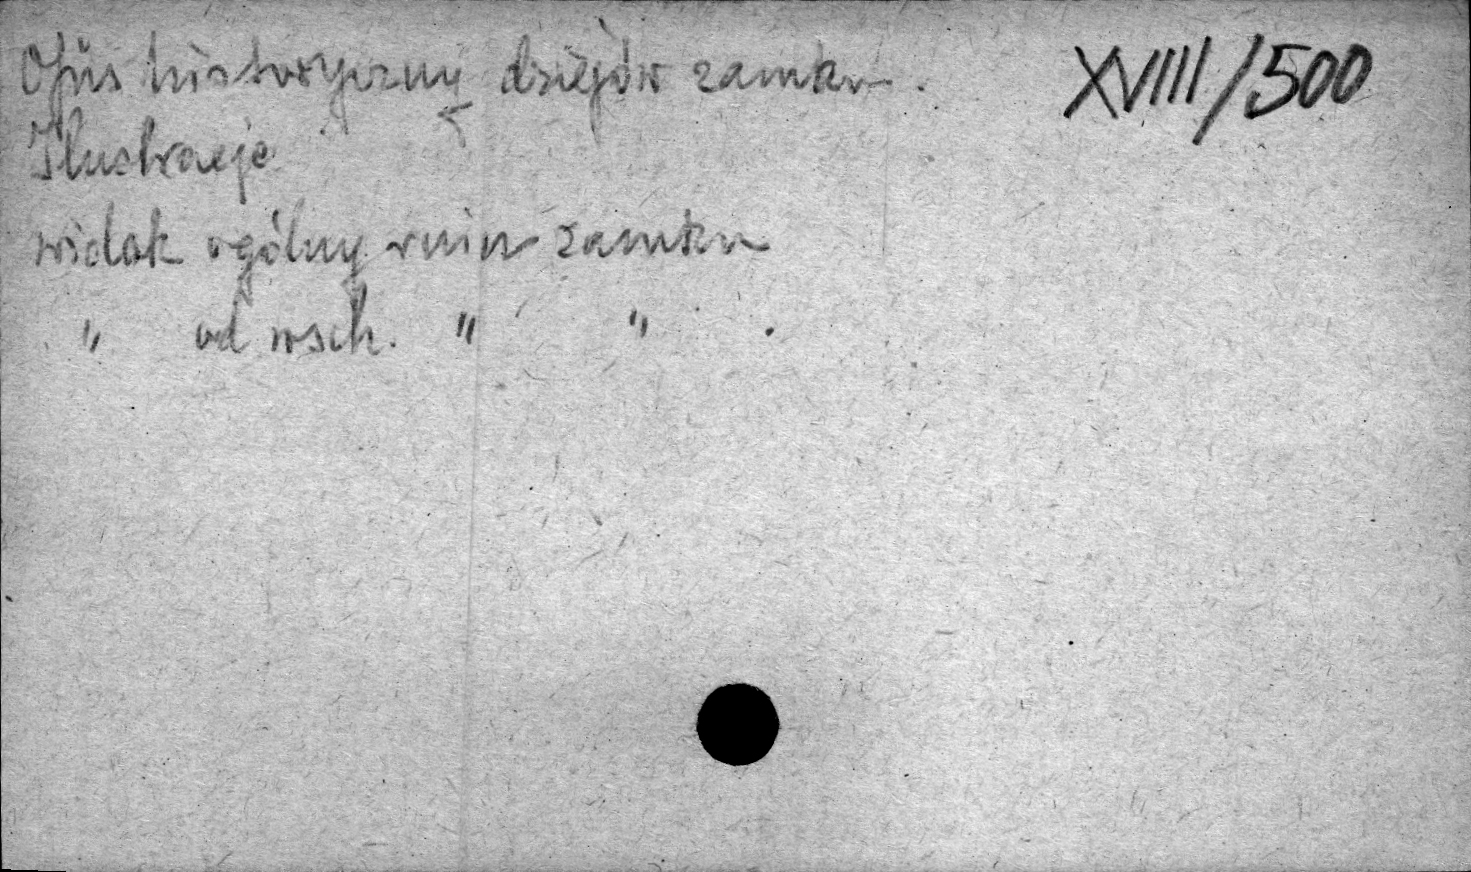 Opis historyczny dziejów zamku.
XVIIII/500
Ilustracje
widok ogólny ruin zamku
" od wsch. " " .